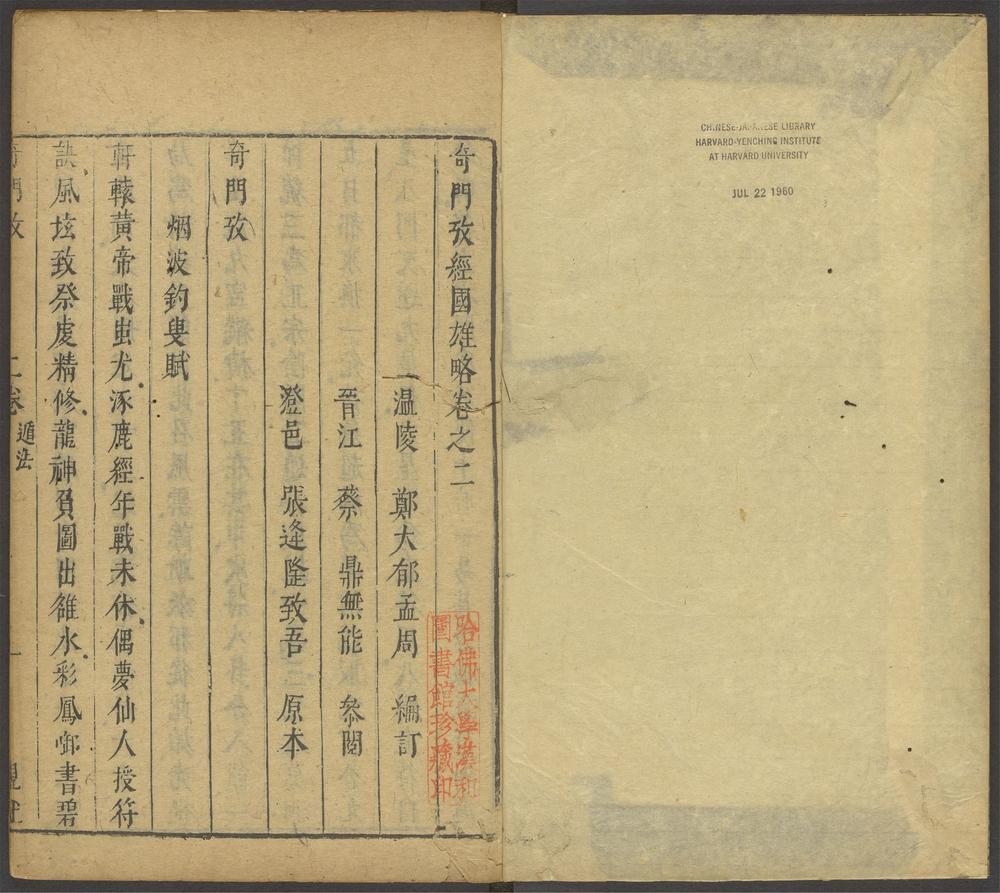 CHINESE-JAPANESE LIBRARY
HARVARD-YENCHING INSTITUTE
AT HARVARD UNIVERSITY
JUL 22 1960
奇門攷經國雄略卷之二
溫陵 鄭大郁孟周 編訂
晉江 蔡鼎無能 叅閱
澄邑 張逢隆致吾 原本
奇門攷
烟波釣叟賦
軒轅黃帝戰蚩尤涿鹿經年戰未休偶夢仙人授符
訣風坛致祭虔精修龍神負圖出雒水彩鳳啣書碧
奇門攷 二卷 遁法 一
哈佛大學漢和
圖書館珍藏印